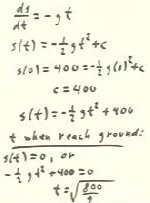 ds/dt = -gt
s(t) = -½gt²+c
s(0) = 400 = -½g(0)²+c
c = 400
s(t) = -½gt² + 400
t when reach ground:
s(t)=0, or
-½gt²+400=0
t=√(800/g)